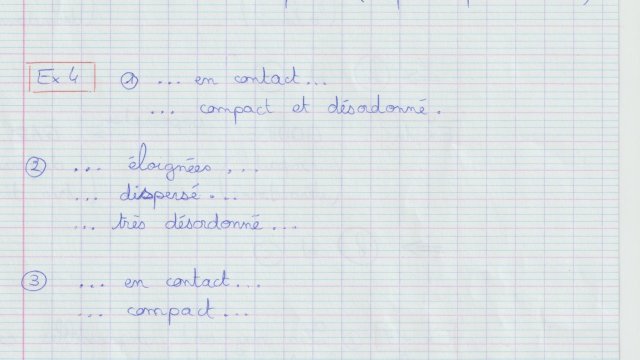 Ex 4 ① ... en contact...
... compact et désordonné.
② ... éloignées ...
... dispersé...
... très désordonné...
③ ... en contact...
... compact...